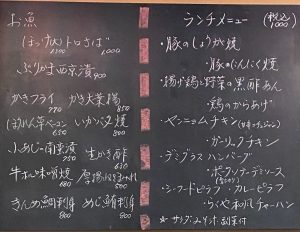 お魚
ほっけ大トロさば
1,000
ぶりカマ西京漬
900
かきフライ かき大葉揚
770 850
ほうれん草ベーコン いかバタ焼
650 800
小あじ南蛮漬 生かき酢
750 630
牛ホルモン味噌焼
680
きんめ鯛刺身 めじ鮪刺身
880 800
ランチメニュー (税込)
1000
・豚のしょうが焼
・豚のにんにく焼
・揚げ鶏と野菜の黒酢あん
・鶏のからあげ
・ヤンニョムチキン
・ガーリックチキン
・デミグラスハンバーグ
・ポークソテーデミソース
・シーフードピラフ ・カレーピラフ
・らぐや和風チャーハン
※サラダ、みそ汁、副菜付